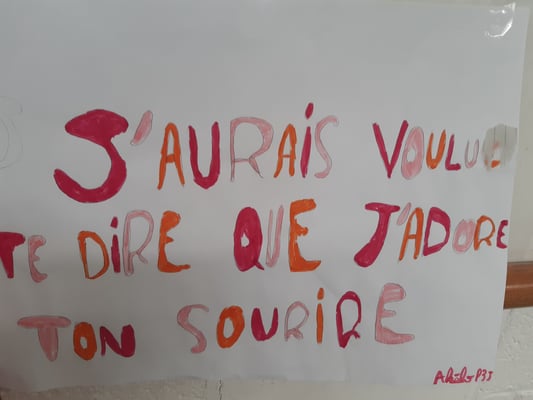 J'AURAIS VOULU
TE DIRE QUE J'ADORE
TON SOURIRE